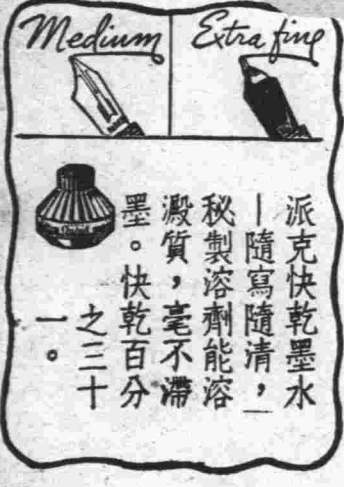 Medium
Extra fine
派克快乾墨水
—隨寫隨清，—
秘製溶劑能溶
澱質，毫不滯
墨。快乾百分
之三十
一。